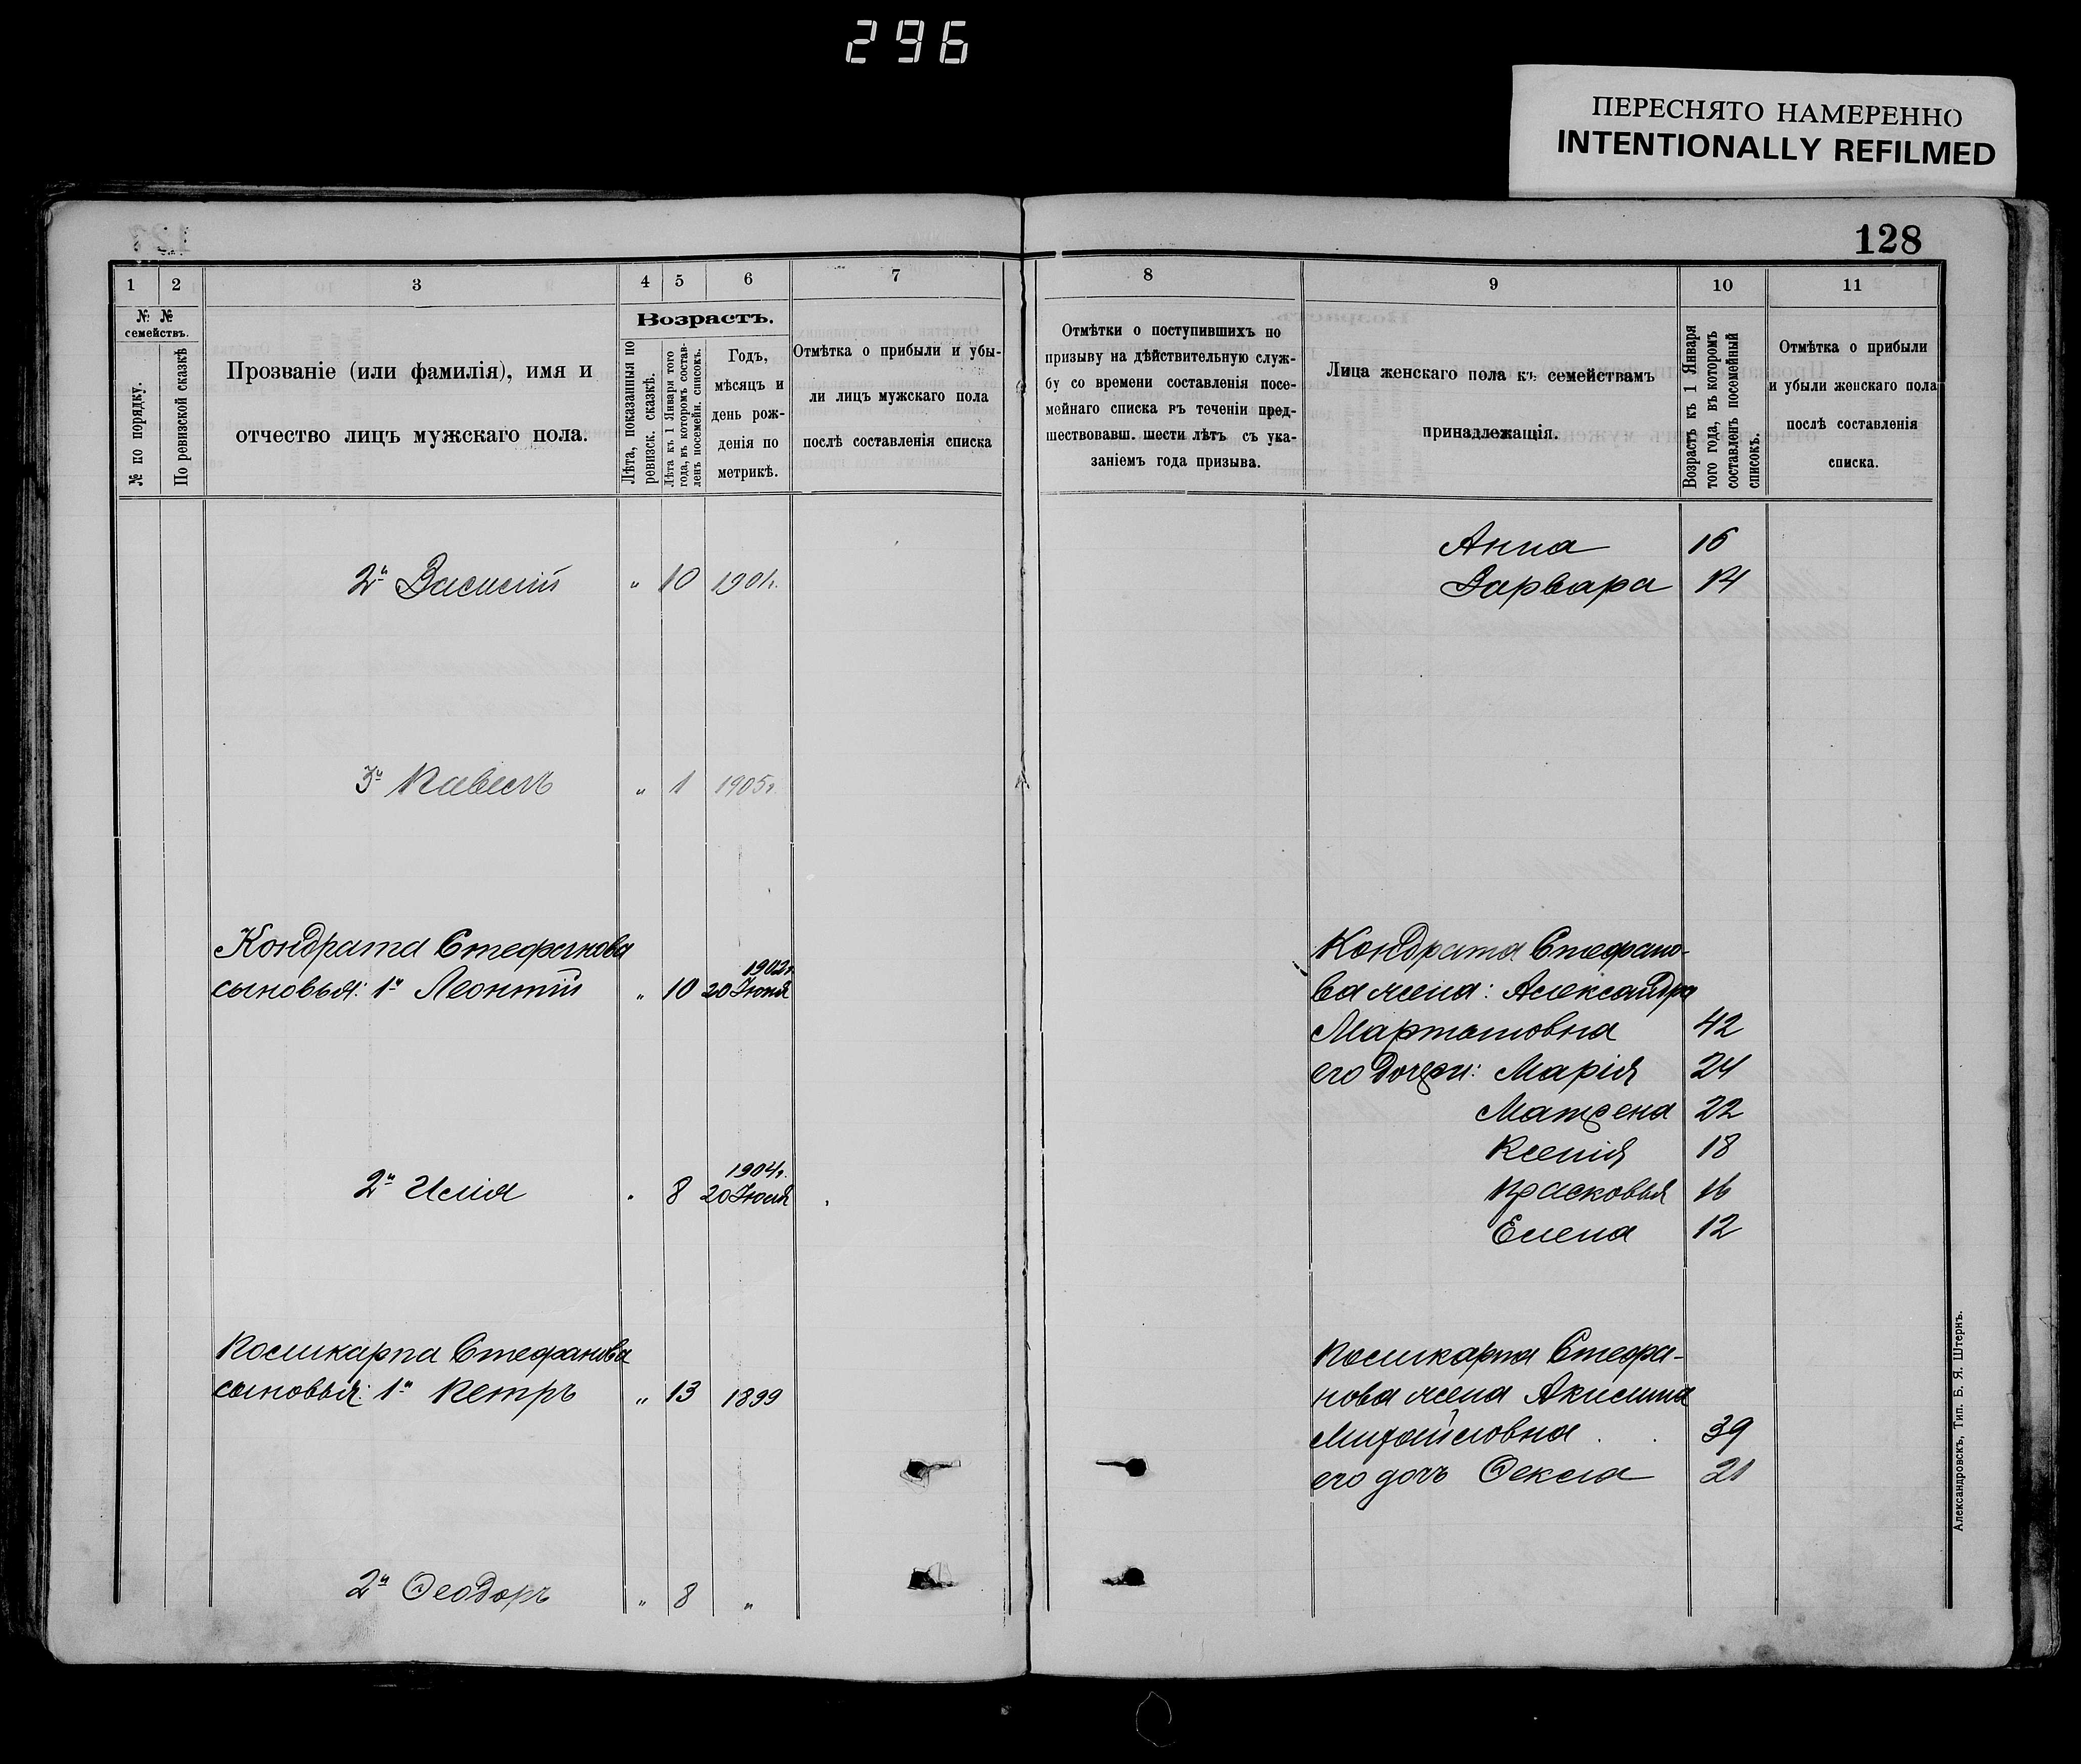 296
ПЕРЕСНЯТО НАМЕРЕННО
INTENTIONALLY REFILMED
128
1 2 3 4 5 6 7 8 9 10 11
№ №
семействъ.
№ по порядку.
По ревизской сказкѣ
Прозваніе (или фамилія), имя и
отчество лицъ мужскаго пола.
Возрастъ.
Лѣта, показанныя по
ревизск. сказкѣ.
Лѣта къ 1 Января того
года, въ которомъ состав-
ленъ посемейн. списокъ.
Годъ,
мѣсяцъ и
день рож-
денія по
метрикѣ.
Отмѣтка о прибыли и убы-
ли лицъ мужскаго пола
послѣ составленія списка
Отмѣтки о поступившихъ по
призыву на дѣйствительную служ-
бу со времени составленія посе-
мейнаго списка въ теченіи пред-
шествовавш. шести лѣтъ съ ука-
заніемъ года призыва.
Лица женскаго пола къ семействамъ
принадлежащія.
Возрастъ къ 1 Января
того года, въ которомъ
составленъ посемейный
списокъ.
Отмѣтка о прибыли
и убыли женскаго пола
послѣ составленія
списка.
Анна 16
2й Василій " 10 1901г.
Варвара 14
3й Павелъ " 1 1905г.
Кондрата Стефанова
сыновья: 1й Леонтій " 10 1902г. 20 Іюня
Кондрата Стефано-
ва жена: Александра
42
его дочери: Марія 24
Матрена 22
Ксенія 18
Прасковья 16
Елена 12
2й Илія 8 1904г. 20 Іюля
Поликарпа Стефанова
сыновья: 1й Петръ " 13 1899
Поликарпа Стефа-
нова жена Акилина
Михайловна 39
его дочь Фекла 21
2й Феодоръ " 8 "
Александровскъ, Тип. Б. Я. Штернъ.